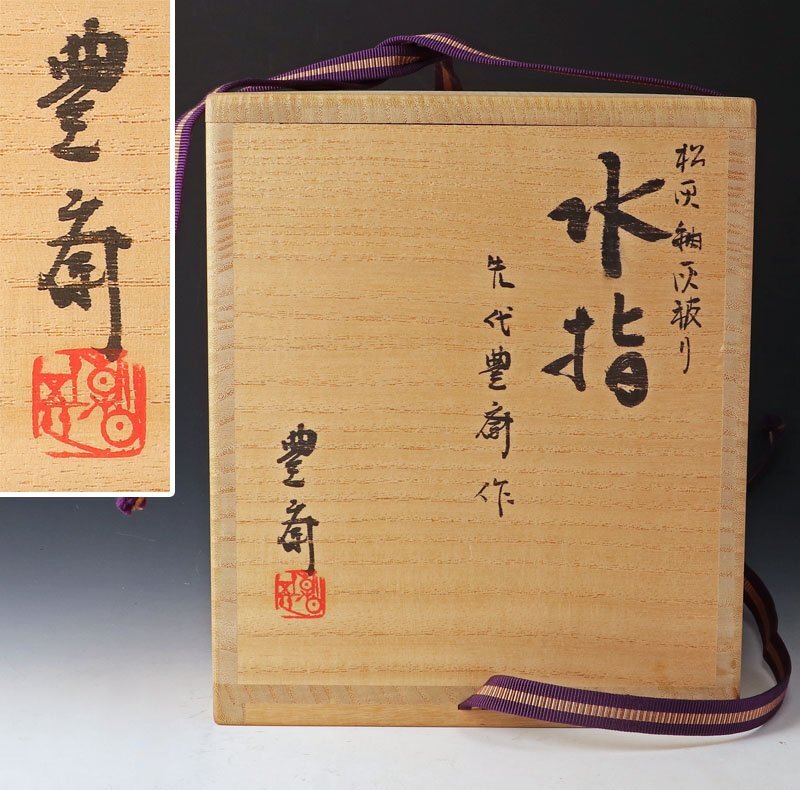 松灰釉灰被り
水指
先代豊斎作
豊斎
豊斎